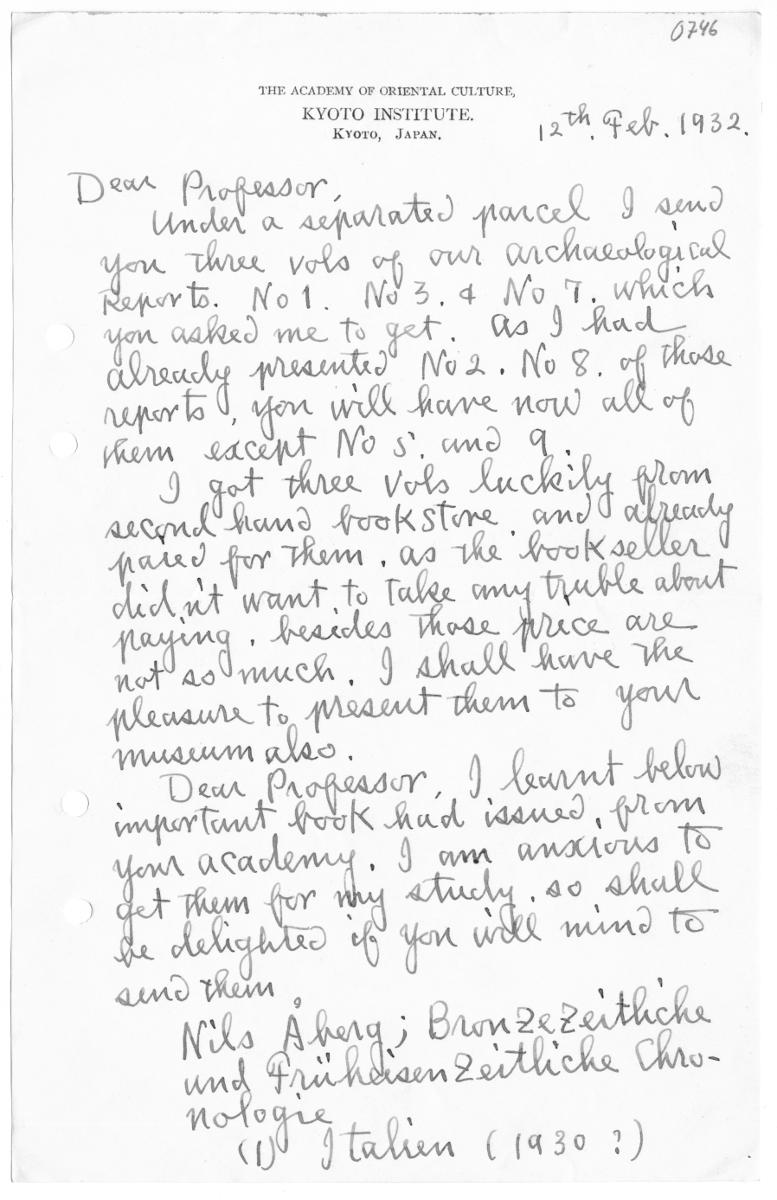 0746
THE ACADEMY OF ORIENTAL CULTURE,
KYOTO INSTITUTE.
KYOTO, JAPAN.
12th. Feb. 1932.
Dear Professor,
Under a separated parcel I send
you three vols of our archaeological
Reports. No 1. No 3. & No 7. which
you asked me to get. As I had
already presented No 2. No 8. of those
reports, you will have now all of
them except No 5. and 9.
I got three vols luckily from
second hand bookstore, and already
paied for them, as the bookseller
didn't want to take any truble about
paying, besides those price are
not so much. I shall have the
pleasure to present them to your
museum also.
Dear Professor, I learnt below
important book had issued, from
your academy. I am anxious to
get them for my study, so shall
be delighted if you will mind to
send them.
Nils Åberg; Bronzezeitliche
und Früheisenzeitliche Chro-
nologie
(1) Italien (1930?)